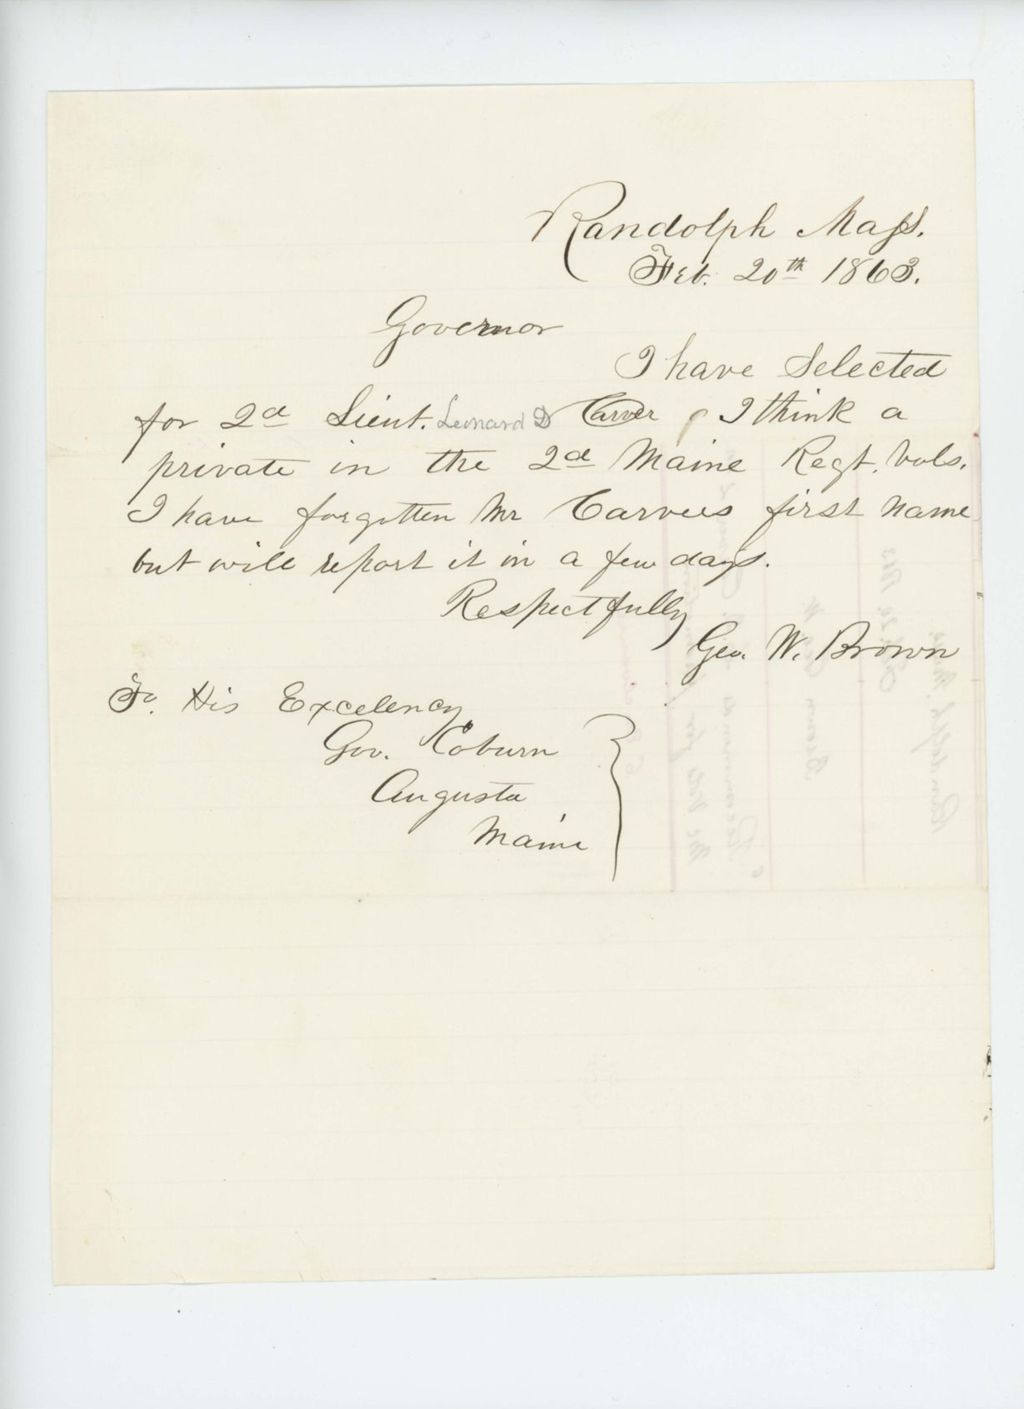 Randolph Mass.
Feb. 20th 1863.
Governor
I have Selected
for 2d Lieut. Leonard D Carver, I think a
private in the 2d Maine Regt. Vols.
I have forgotten Mr Carvers first name
but will report it in a few days.
Respectfully
Geo. W. Brown
To. His Excelency
Gov. Coburn
Augusta
Maine